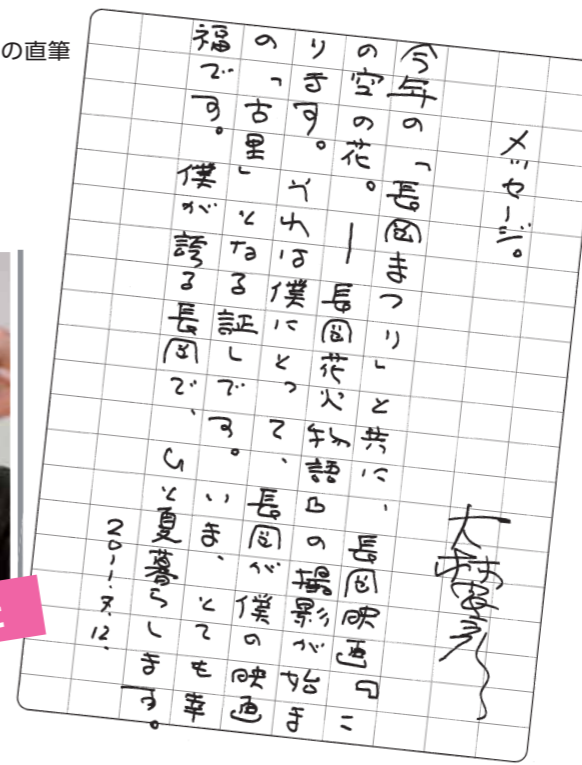 の直筆
メッセージ。
大林宣彦
今年の「長岡まつり」と共に、長岡映画『こ
の空の花。―長岡花火物語』の撮影が始ま
ります。これは僕にとって、長岡が僕の映画
の「古里」となる証しです。いま、とても幸
福です。僕が誇る長岡で、ひと夏暮らします。
2011.7.12.